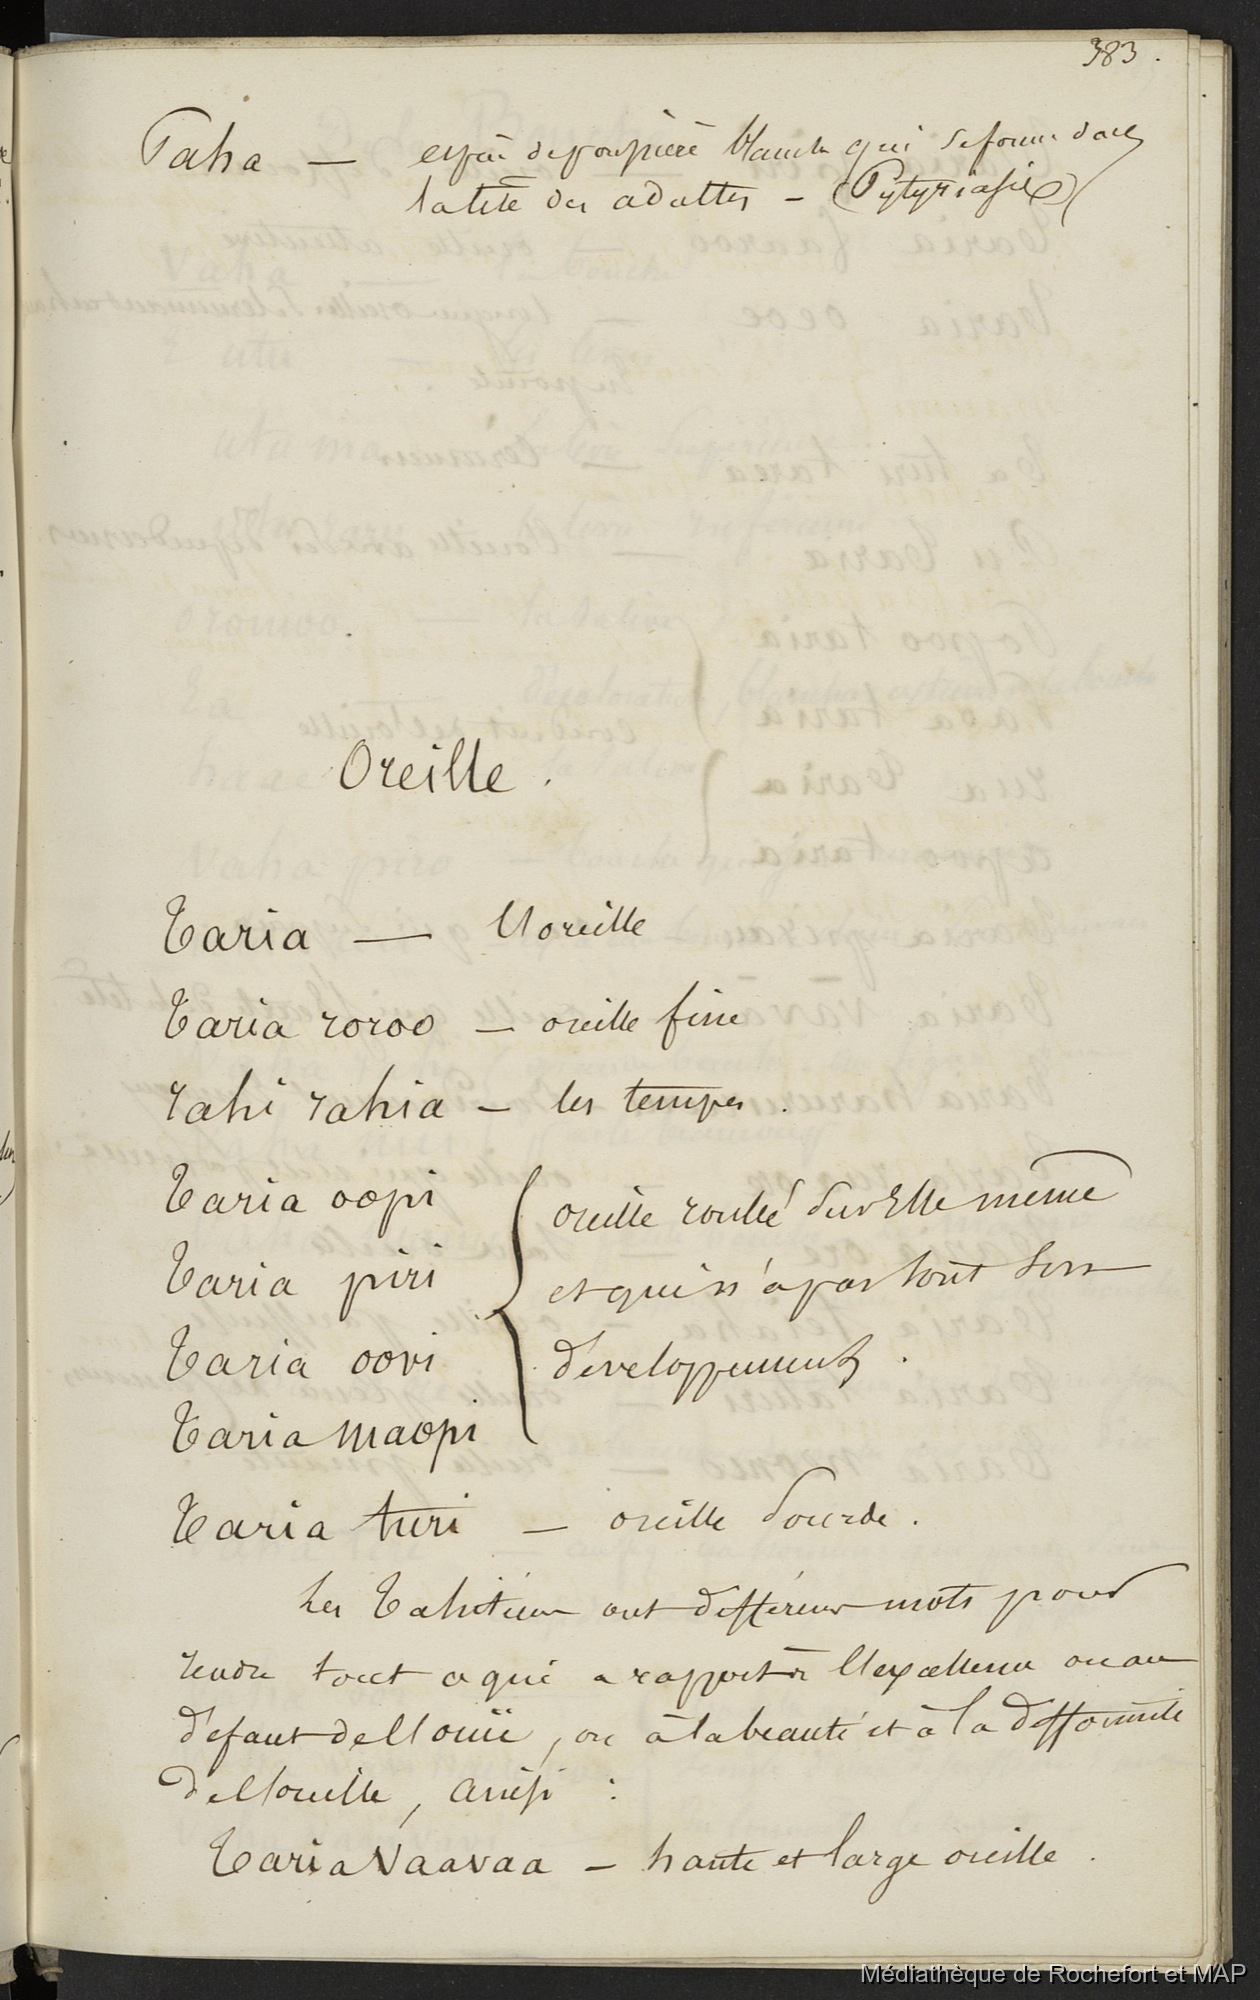 383.
Taha — espèce de poussière blanche qui se forme dans
la tête des adultes — (Pytyriasis)
Oreille.
Taria — l'oreille
Taria roroo — oreille fine
rahi rahia — les tempes.
Taria oopi
Taria piri
Taria oovi
Taria maopi
oreille roulée sur elle même
et qui n'a pas tout son
développement.
Taria turi — oreille sourde.
Les Tahitiens ont différens mots pour
rendre tout ce qui a rapport à l'excellence ou au
défaut de l'ouïe, ou à la beauté et à la difformité
de l'oreille, ainsi :
Taria vaavaa — haute et large oreille.
Médiathèque de Rochefort et MAP